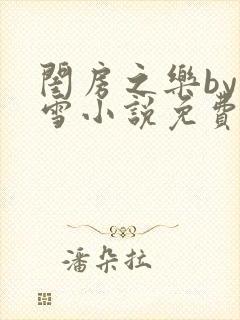 閨房之樂by
雪小說免費
潘朵拉